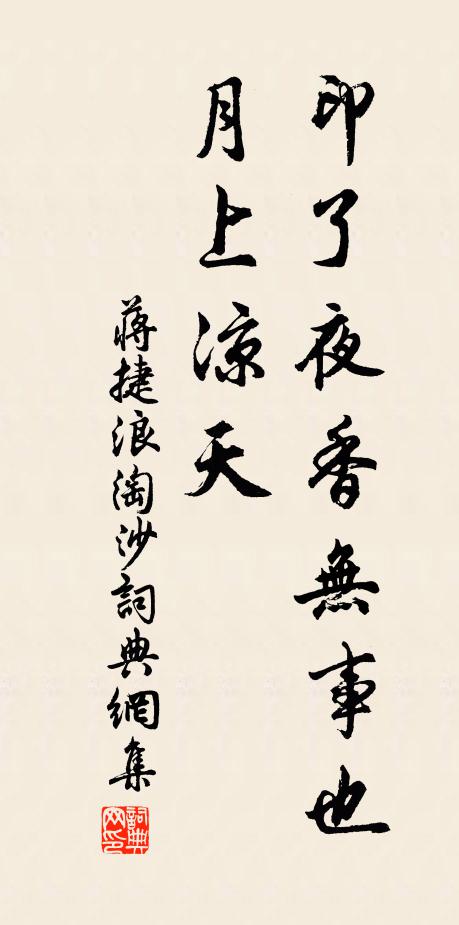 印了夜香無事也
月上涼天
蔣捷浪淘沙詞典網集
詞典
网印